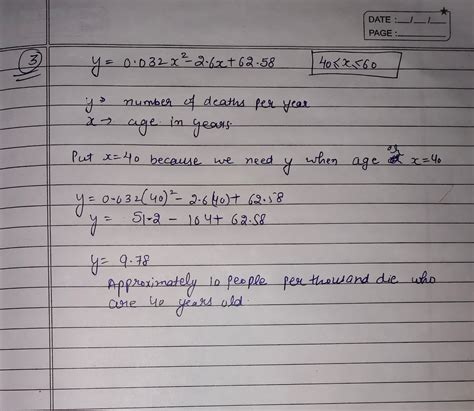 DATE: __/__/__
PAGE:
3
y = 0.032x² - 2.6x + 62.58
40<x≤60
y → number of deaths per year
x → age in years
Put x=40 because we need y when age or x=40
y = 0.032(40)² - 2.6(40) + 62.58
y = 51.2 - 104 + 62.58
y = 9.78
Approximately 10 people per thousand die who
are 40 years old.